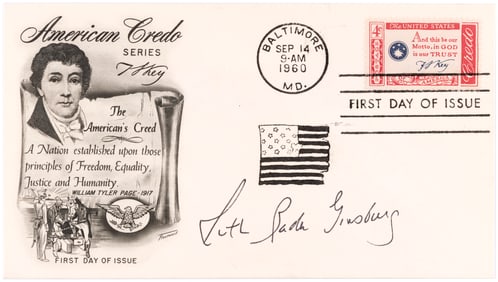 American Credo
SERIES
F S Key
The
American's Creed
A Nation established upon those
principles of Freedom, Equality,
Justice and Humanity.
WILLIAM TYLER PAGE - 1917
FIRST DAY OF ISSUE
BALTIMORE
SEP 14
9-AM
1960
MD.
FIRST DAY OF ISSUE
4¢
The UNITED STATES
And this be our
Motto, in GOD
is our TRUST
F S Key
Credo
Ruth Bader Ginsburg